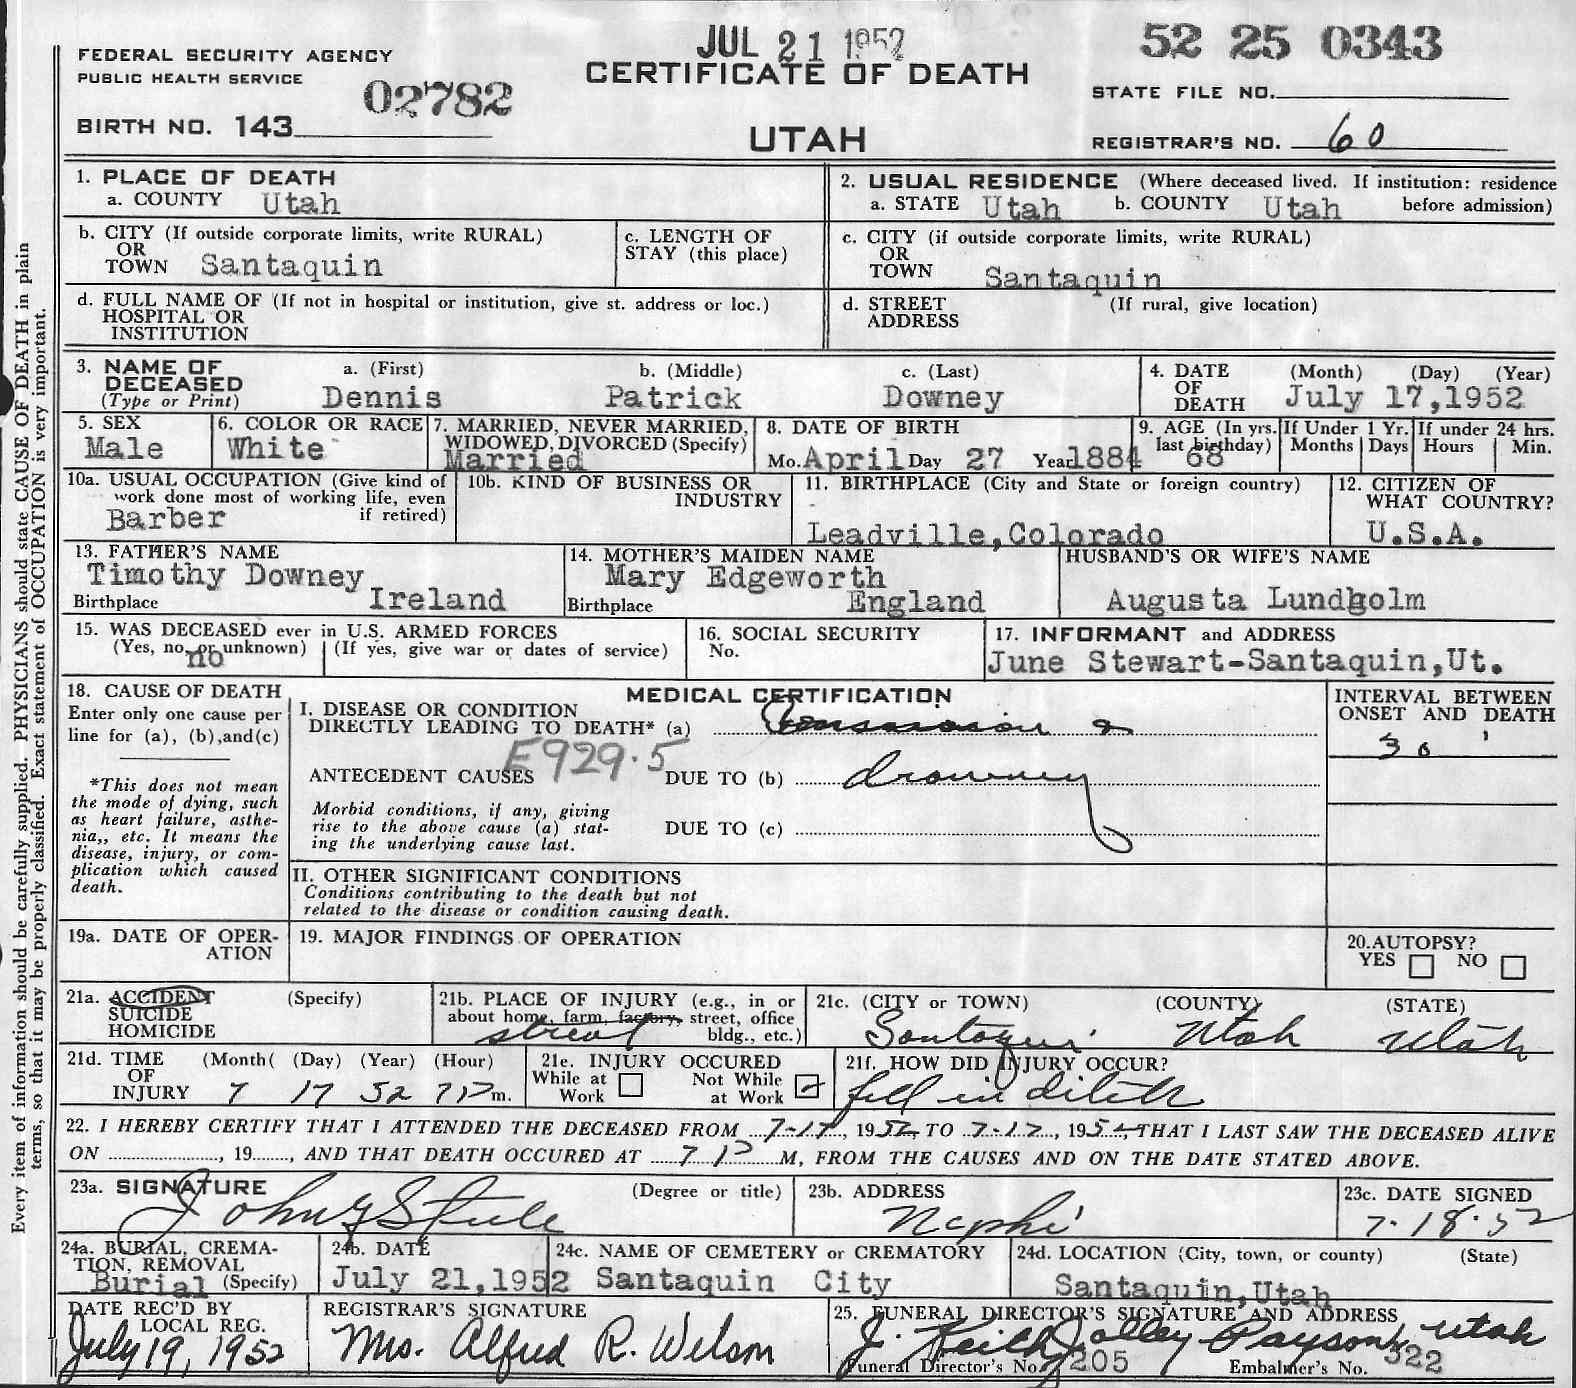 JUL 21 1952
52 25 0343
FEDERAL SECURITY AGENCY
PUBLIC HEALTH SERVICE
02782
CERTIFICATE OF DEATH
STATE FILE NO.
BIRTH NO. 143
UTAH
REGISTRAR'S NO. 60
Every item of information should be carefully supplied. PHYSICIANS should state CAUSE OF DEATH in plain
terms, so that it may be properly classified. Exact statement of OCCUPATION is very important.
1. PLACE OF DEATH
a. COUNTY Utah
2. USUAL RESIDENCE (Where deceased lived. If institution: residence
a. STATE Utah b. COUNTY Utah before admission)
b. CITY (If outside corporate limits, write RURAL)
OR
TOWN Santaquin
c. LENGTH OF
STAY (this place)
c. CITY (if outside corporate limits, write RURAL)
OR
TOWN Santaquin
d. FULL NAME OF (If not in hospital or institution, give st. address or loc.)
HOSPITAL OR
INSTITUTION
d. STREET (If rural, give location)
ADDRESS
3. NAME OF
DECEASED
(Type or Print)
a. (First)
Dennis
b. (Middle)
Patrick
c. (Last)
Downey
4. DATE (Month) (Day) (Year)
OF
DEATH July 17,1952
5. SEX
Male
6. COLOR OR RACE
White
7. MARRIED, NEVER MARRIED,
WIDOWED, DIVORCED (Specify)
Married
8. DATE OF BIRTH
Mo. April Day 27 Year 1884
9. AGE (In yrs.
last birthday)
68
If Under 1 Yr.
Months Days
If under 24 hrs.
Hours Min.
10a. USUAL OCCUPATION (Give kind of
work done most of working life, even
if retired)
Barber
10b. KIND OF BUSINESS OR
INDUSTRY
11. BIRTHPLACE (City and State or foreign country)
Leadville,Colorado
12. CITIZEN OF
WHAT COUNTRY?
U.S.A.
13. FATHER'S NAME
Timothy Downey
Birthplace Ireland
14. MOTHER'S MAIDEN NAME
Mary Edgeworth
Birthplace England
HUSBAND'S OR WIFE'S NAME
Augusta Lundholm
15. WAS DECEASED ever in U.S. ARMED FORCES
(Yes, no, or unknown) (If yes, give war or dates of service)
no
16. SOCIAL SECURITY
No.
17. INFORMANT and ADDRESS
June Stewart-Santaquin,Ut.
18. CAUSE OF DEATH
Enter only one cause per
line for (a), (b),and(c)
*This does not mean
the mode of dying, such
as heart failure, asthe-
nia,, etc. It means the
disease, injury, or com-
plication which caused
death.
MEDICAL CERTIFICATION
I. DISEASE OR CONDITION
DIRECTLY LEADING TO DEATH* (a) &
E929.5
ANTECEDENT CAUSES DUE TO (b)
Morbid conditions, if any, giving
rise to the above cause (a) stat-
ing the underlying cause last.
DUE TO (c)
II. OTHER SIGNIFICANT CONDITIONS
Conditions contributing to the death but not
related to the disease or condition causing death.
INTERVAL BETWEEN
ONSET AND DEATH
30 '
19a. DATE OF OPER-
ATION
19. MAJOR FINDINGS OF OPERATION
20.AUTOPSY?
YES NO
21a. ACCIDENT (Specify)
SUICIDE
HOMICIDE
21b. PLACE OF INJURY (e.g., in or
about home, farm, factory, street, office
bldg., etc.)
street
21c. (CITY or TOWN) (COUNTY) (STATE)
Santaquin Utah Utah
21d. TIME (Month( (Day) (Year) (Hour)
OF
INJURY 7 17 52 7 P m.
21e. INJURY OCCURED
While at Work
Not While at Work
21f. HOW DID INJURY OCCUR?
fell in ditch
22. I HEREBY CERTIFY THAT I ATTENDED THE DECEASED FROM 7-17, 1952, TO 7-17, 1952, THAT I LAST SAW THE DECEASED ALIVE
ON , 19 , AND THAT DEATH OCCURED AT 7 P M, FROM THE CAUSES AND ON THE DATE STATED ABOVE.
23a. SIGNATURE (Degree or title)
John
23b. ADDRESS
Nephi
23c. DATE SIGNED
7-18-52
24a. BURIAL, CREMA-
TION, REMOVAL
Burial (Specify)
24b. DATE
July 21,1952
24c. NAME OF CEMETERY or CREMATORY
Santaquin City
24d. LOCATION (City, town, or county) (State)
Santaquin,Utah
DATE REC'D BY
LOCAL REG.
July 19, 1952
REGISTRAR'S SIGNATURE
Mrs. Alfred R. Wilson
25. FUNERAL DIRECTOR'S SIGNATURE AND ADDRESS
J. Keith Jolley Payson Utah
Funeral Director's No. 205 Embalmer's No. 322